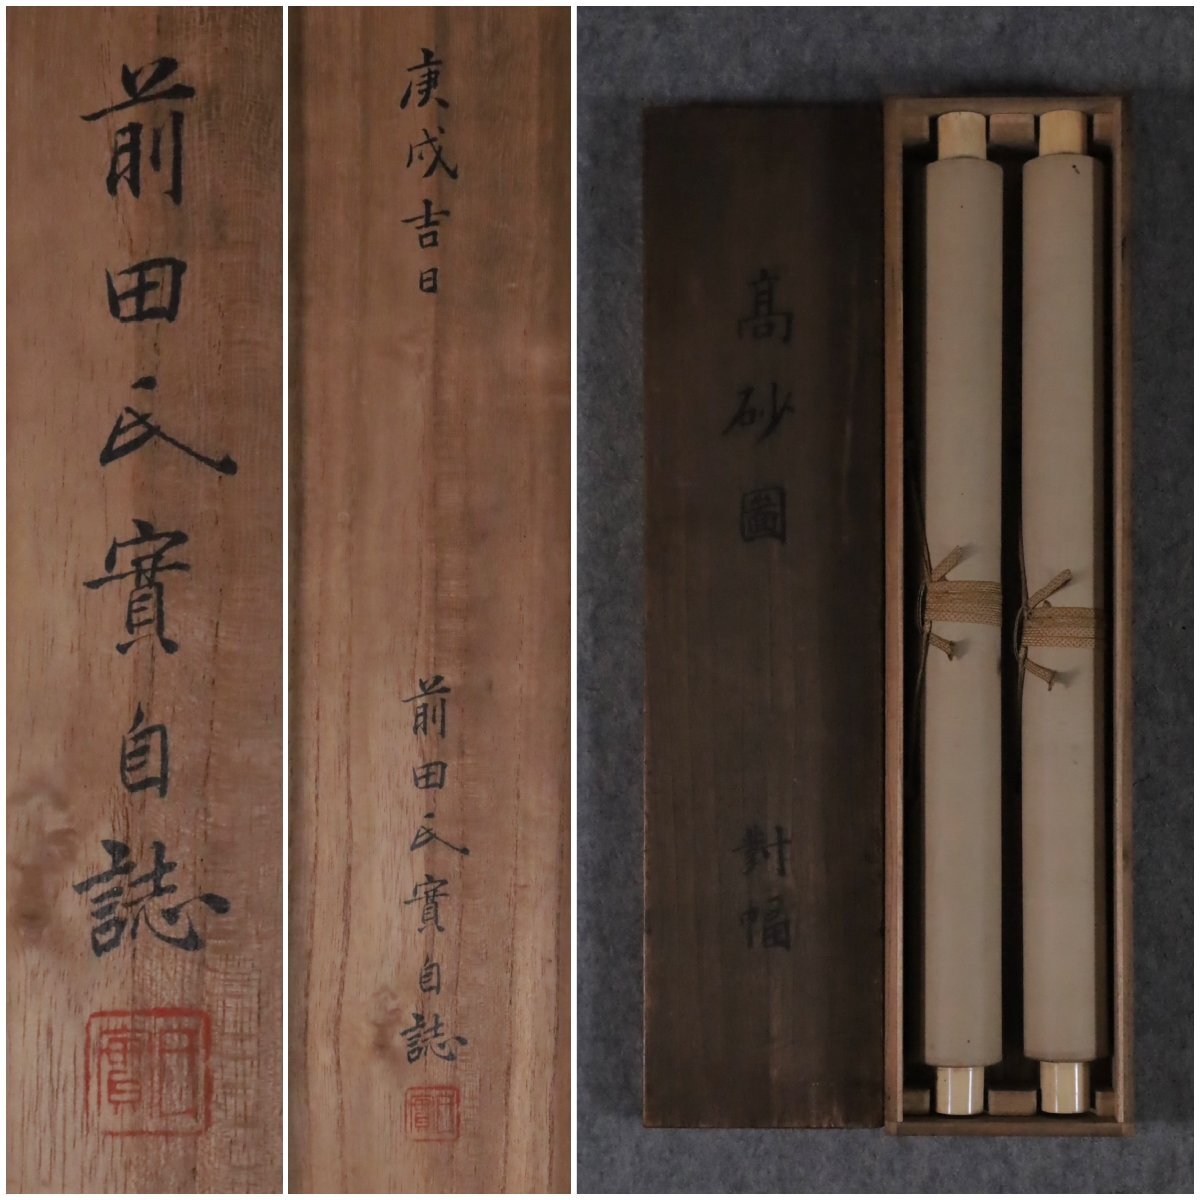 前田氏實自誌
庚戌吉日
前田氏實自誌
高砂圖
對幅